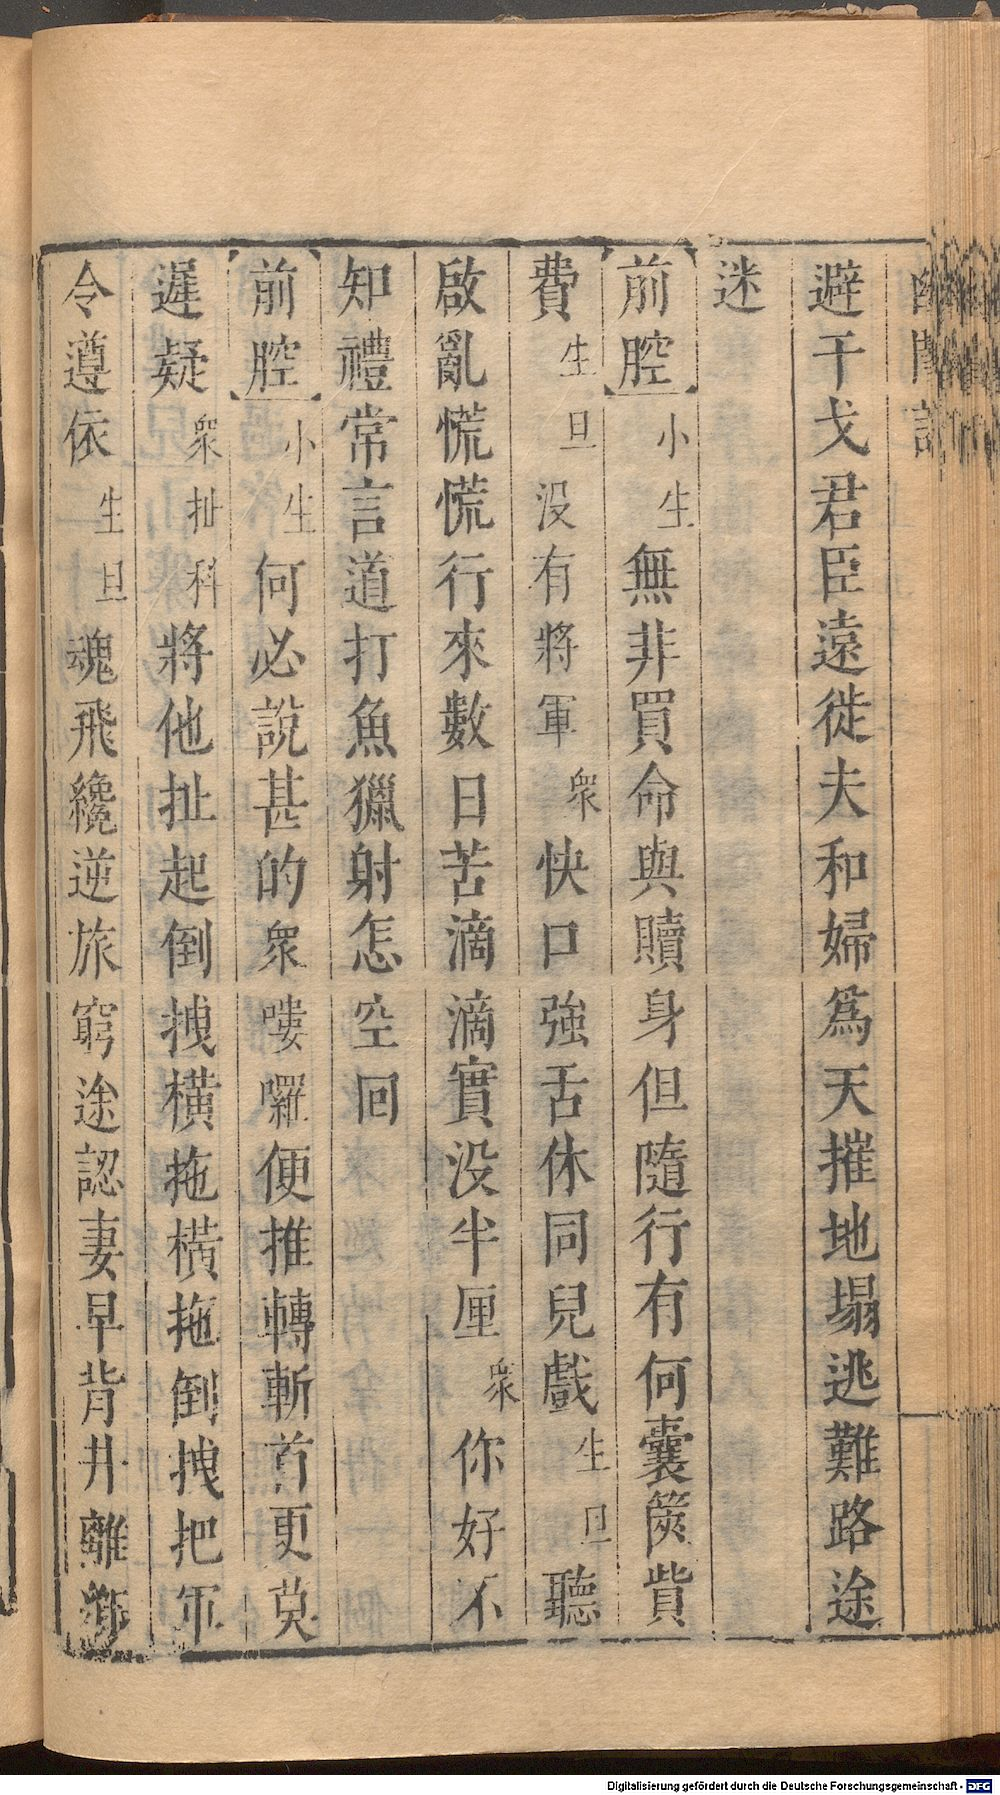 幽閨記
避干戈君臣遠徙夫和婦爲天摧地塌逃難路途
迷
【前腔】小生無非買命與贖身但隨行有何囊篋貲
費生旦没有將軍衆快口強舌休同兒戲生旦聽
啟亂慌慌行來數日苦滴滴實没半厘衆你好不
知禮常言道打魚獵射怎空回
【前腔】小生何必說甚的衆嘍囉便推轉斬首更莫
遲疑衆扯科將他扯起倒拽橫拖橫拖倒拽把軍
令遵依生旦魂飛纔逆旅窮途認妻早背井離鄉
Digitalisierung gefördert durch die Deutsche Forschungsgemeinschaft - DFG